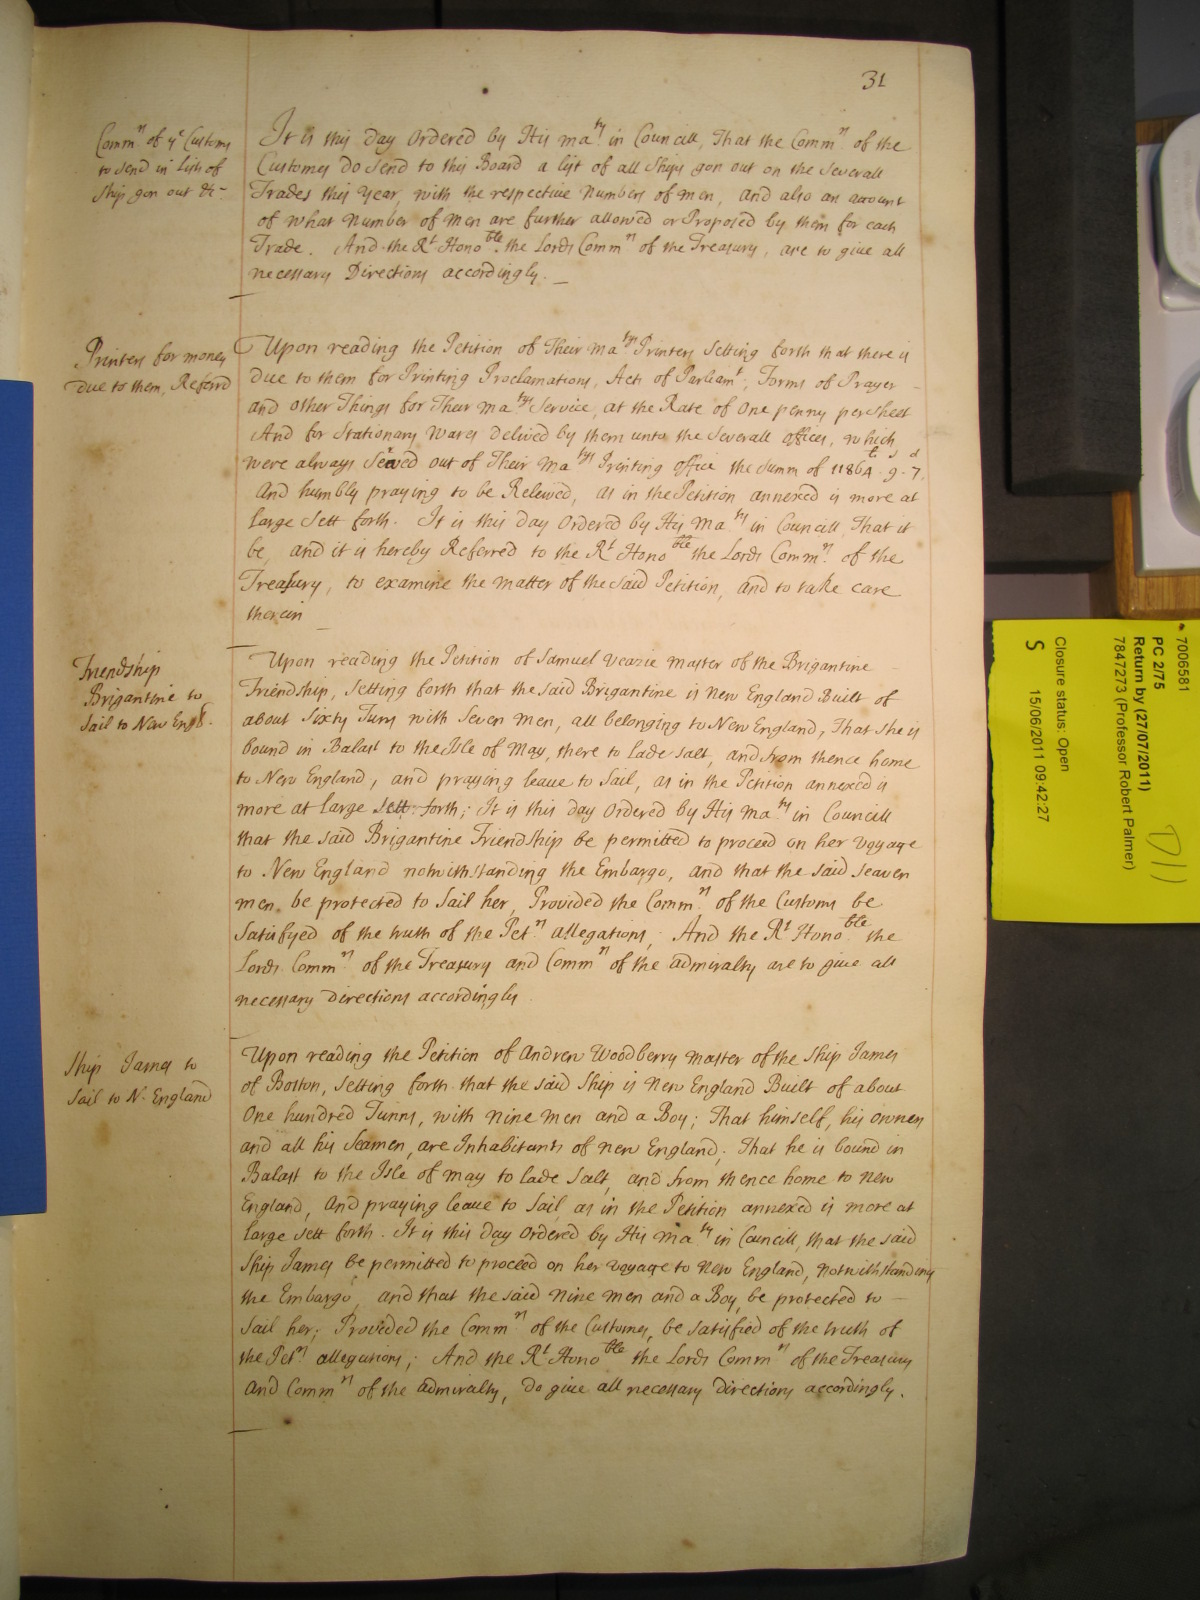 31
Comm^rs of y^e Customs
to send in Lists of
Ships gon out &c-
It is this day Ordered by His Ma^ty in Councill, That the Comm^rs of the
Customes Do send to this Board a list of all Ships gon out on the severall
Trades this year, with the respective Numbers of men, and also an account
of what Number of Men are further allowed or Proposed by them for each
Trade. And the R^t Hono^ble the Lords Comm^rs of the Treasury, are to give all
necessary Directions accordingly.
Printers for money
Due to them, Referrd
Upon reading the Petition of Their Ma^tys Printers Setting forth that there is
Due to them for Printing Proclamations, Acts of Parliam^t, Forms of Prayer
and other Things for Their Ma^tys Service, at the Rate of One penny per sheet
And for Stationary Wares Delived by them unto the Severall offices, which
were always Served out of Their Ma^tys Printing office the Summ of 11864^£. 9^s. 7^d
And humbly praying to be Releived, as in the Petition annexed is more at
large Sett forth. It is this Day Ordered by His Ma^ty in Councill, That it
be, and it is hereby Referred to the R^t Hono^ble the Lords Comm^rs of the
Treasury, to examine the matter of the said Petition, and to take care
therein
Friendship
Brigantine to
Sail to New Engl^d.
Upon reading the Petition of Samuel Veazie Master of the Brigantine
Friendship, Setting forth that the said Brigantine is New England Built of
about Sixty Tuns with Seven men, all belonging to New England, That she is
bound in Balast to the Isle of May, there to lade salt, and from thence home
to New England, and praying leave to Sail, as in the Petition annexed is
more at large sett forth; It is this day Ordered by His Ma^ty in Councill
that the said Brigantine Friendship be permitted to proceed on her voyage
to New England notwithstanding the Embargo, and that the said seaven
men be protected to Sail her, Provided the Comm^rs of the Customs be
Satisfyed of the truth of the Pet^rs allegations; And the R^t Hono^ble the
Lords Comm^rs of the Treasury and Comm^rs of the admiralty are to give all
necessary directions accordingly
Ship James to
Sail to N. England
Upon reading the Petition of Andrew Woodberry master of the Ship James
of Boston, setting forth that the said Ship is New England Built of about
One hundred Tunns, with Nine Men and a Boy; That himself, his owners
and all his Seamen, are Inhabitants of New England; That he is bound in
Balast to the Isle of May to lade Salt, and from thence home to New
England, And praying leave to Sail, as in the Petition annexed is more at
large Sett forth. It is this Day Ordered by His Ma^ty in Councill, that the said
Ship James be permitted to proceed on her voyage to New England, notwithstanding
the Embargo, and that the said Nine Men and a Boy, be protected to
Sail her; Provided the Comm^rs of the Customes, be satisfied of the truth of
the Pet^rs allegations; And the R^t Hono^ble the Lords Comm^rs of the Treasury
and Comm^rs of the admiralty, Do give all necessary Directions accordingly.
7006581
PC 2/75
Return by (27/07/2011)
7847273 (Professor Robert Palmer)
Closure status: Open
15/06/2011 09:42:27
S